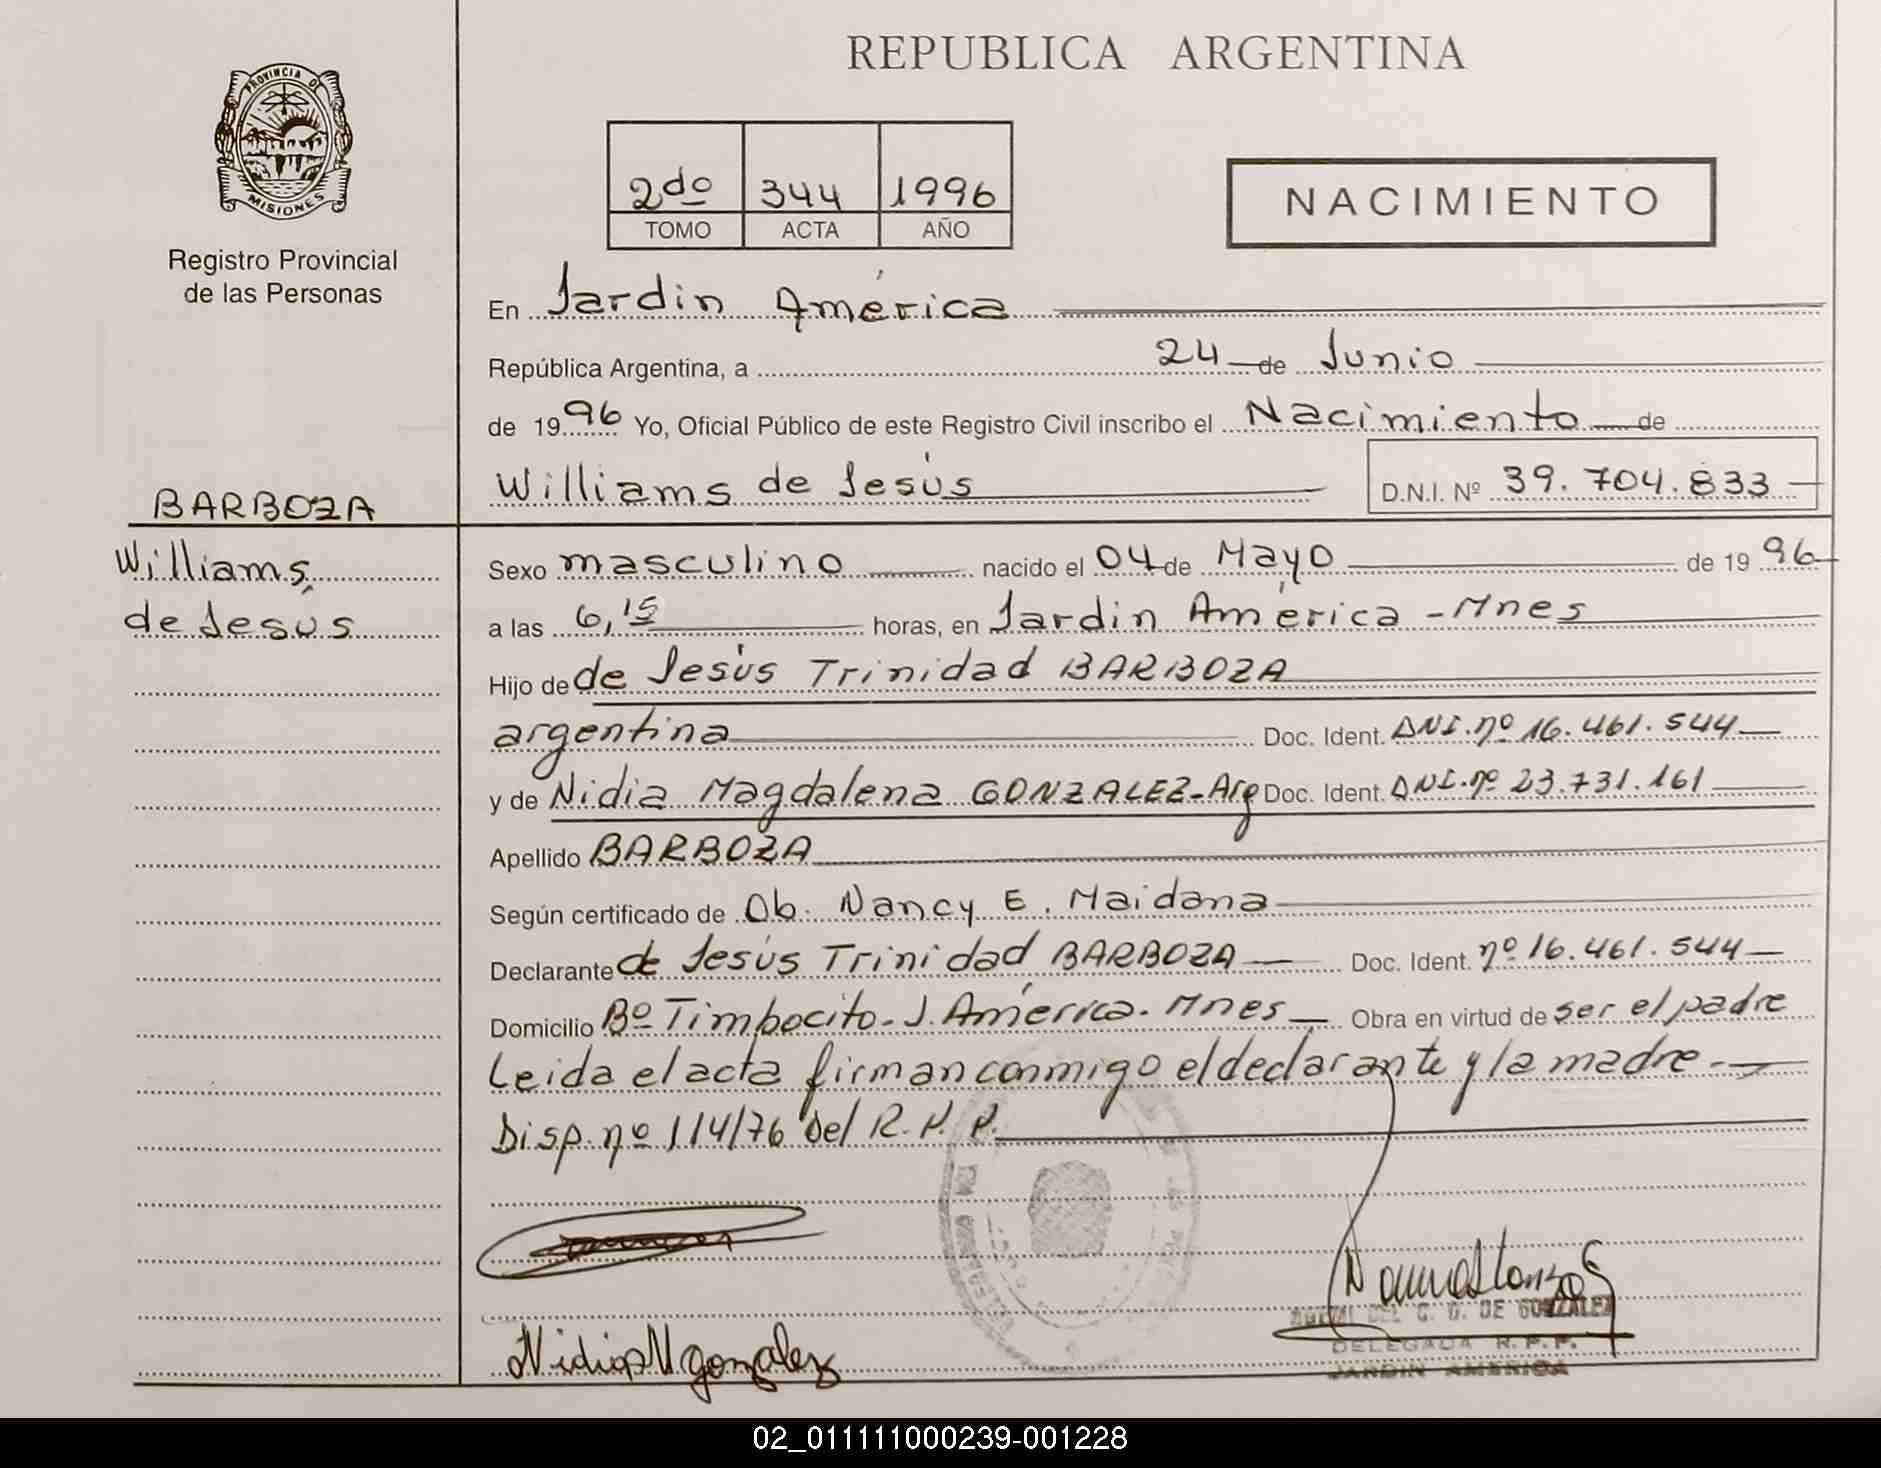 REPUBLICA ARGENTINA
PROVINCIA DE
MISIONES
Registro Provincial
de las Personas
2do 344 1996
TOMO ACTA AÑO
NACIMIENTO
En Jardin América
República Argentina, a 24 de Junio
de 1996 Yo, Oficial Público de este Registro Civil inscribo el Nacimiento de
Williams de Jesús D.N.I. Nº 39.704.833
BARBOZA
Williams
de Jesús
Sexo masculino nacido el 04 de Mayo de 1996
a las 6,15 horas, en Jardin América - Mnes
Hijo de de Jesús Trinidad BARBOZA
argentina Doc. Ident. DNI. nº 16.461.544
y de Nidia Magdalena GONZALEZ-Arg Doc. Ident. DNI. nº 23.731.161
Apellido BARBOZA
Según certificado de Ob. Nancy E. Maidana
Declarante de Jesús Trinidad BARBOZA Doc. Ident. nº 16.461.544
Domicilio Bº Timbocito - J. América - Mnes Obra en virtud de ser el padre
Leida el acta firman conmigo el declarante y la madre -
Disp. nº 114/76 del R.P.P.
DEL C. G. DE GONZALEZ
DELEGADA R.P.P.
JARDIN AMERICA
Nidia M gonzalez
02_011111000239-001228